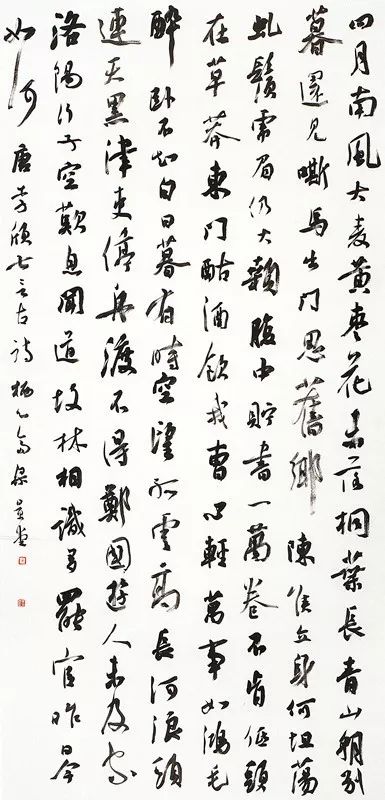 四月南風大麦黄枣花未落桐葉長青山朝别
暮還見嘶馬出門思舊鄉陳侯立身何坦蕩
虬鬚虎眉仍大顙腹中貯書一萬卷不肯低頭
在草莽東門酤酒飲我曹心輕萬事如鴻毛
醉卧不知白日暮有時空望孤雲高長河浪頭
連天黑津吏停舟渡不得鄭國遊人未及家
洛陽行子空歎息聞道故林相識多罷官昨日今
如何 唐李颀七言古詩